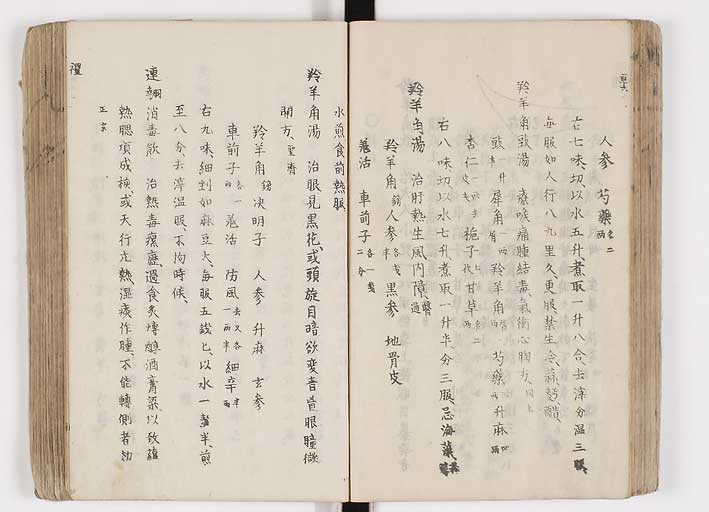 人參 芍藥各二両
右七味切以水五升煮取一升八合去滓分温三服
每服如人行八九里久更服禁生冷蒜麪醋
羚羊角豉湯 療喉痛腫結毒氣衝心胸方
豉 犀角 羚羊角 芍藥 升麻
杏仁 梔子 甘草
右八味切以水七升煮取一升半分三服忌海藻
羚羊角湯 治肝熱生風内障 通
羚羊角鎊 人參各 黒參 地骨皮
羗活 車前子各一
水煎食前熱服
羚羊角湯 治眼見黒花或頭旋目暗欲変青盲眼瞳微
開方 聖濟
羚羊角鎊 决明子 人參 升麻 玄參
車前子各一両 羗活 防風 細辛半両
右九味細剉如麻豆大每服五錢匕以水一盞半煎
至八分去滓温服不拘時候
連翹消毒飲 治熱毒瘰癧過食炙煿醇酒膏粱以致蘊
熱腮項成核或天行走熱濕痰作腫不能轉側者
正宗